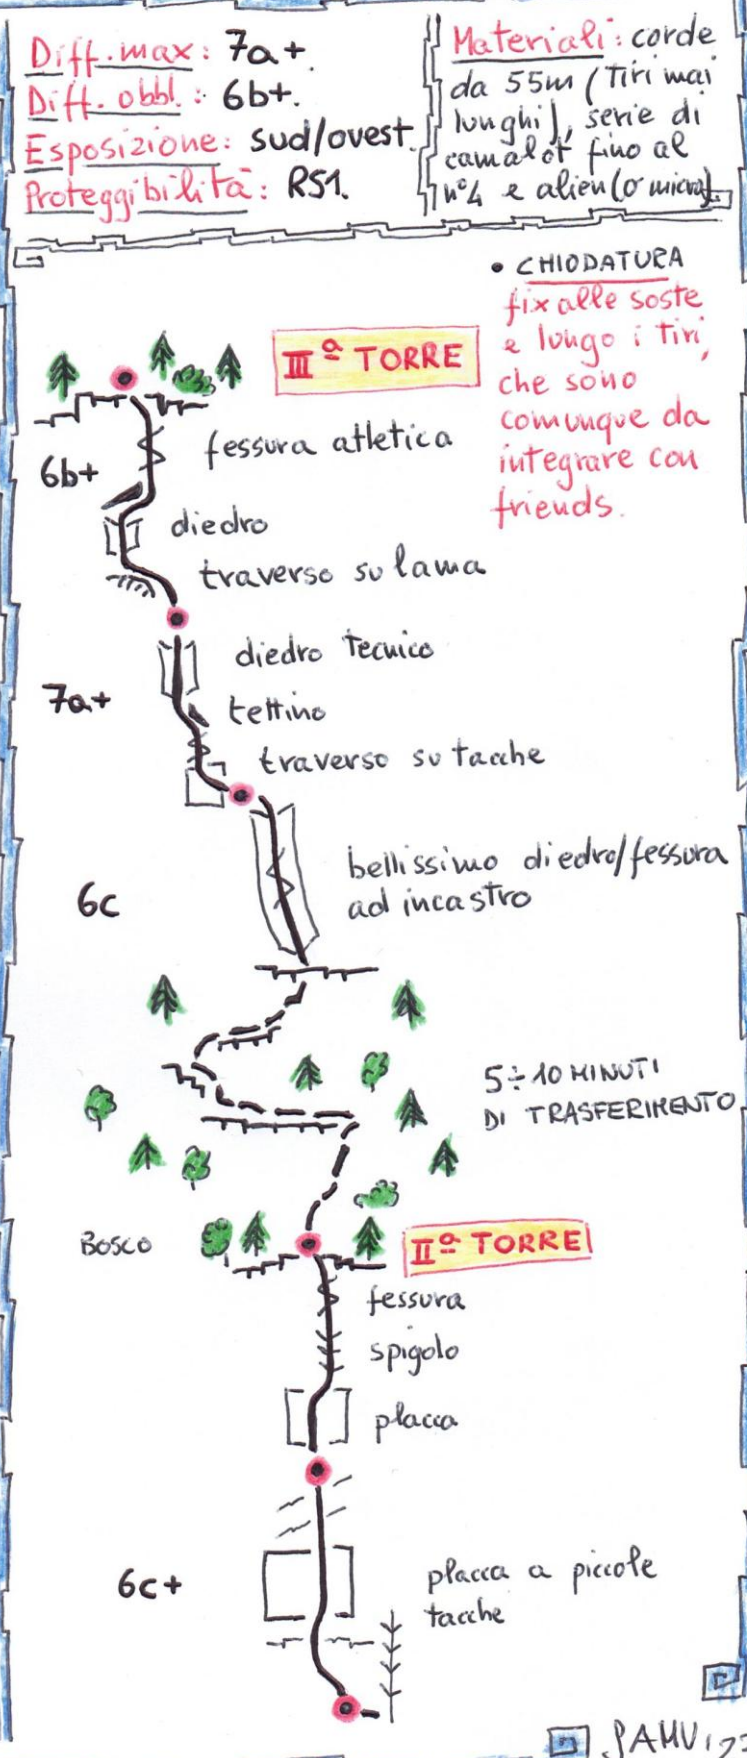 Diff. max: 7a+.
Diff. obbl.: 6b+.
Esposizione: sud/ovest.
Proteggibilità: RS1.
Materiali: corde
da 55m (Tiri mai
lunghi), serie di
camalot fino al
n°4 e alien (o micro)
• CHIODATURA
fix alle soste
e lungo i tiri,
che sono
comunque da
integrare con
friends.
IIIª TORRE
fessura atletica
6b+
diedro
traverso su lama
diedro Tecnico
7a+
tettino
traverso su tacche
bellissimo diedro/fessura
ad incastro
6c
5÷10 MINUTI
DI TRASFERIMENTO
BOSCO
IIª TORRE
fessura
spigolo
placca
6c+
placca a piccole
tacche